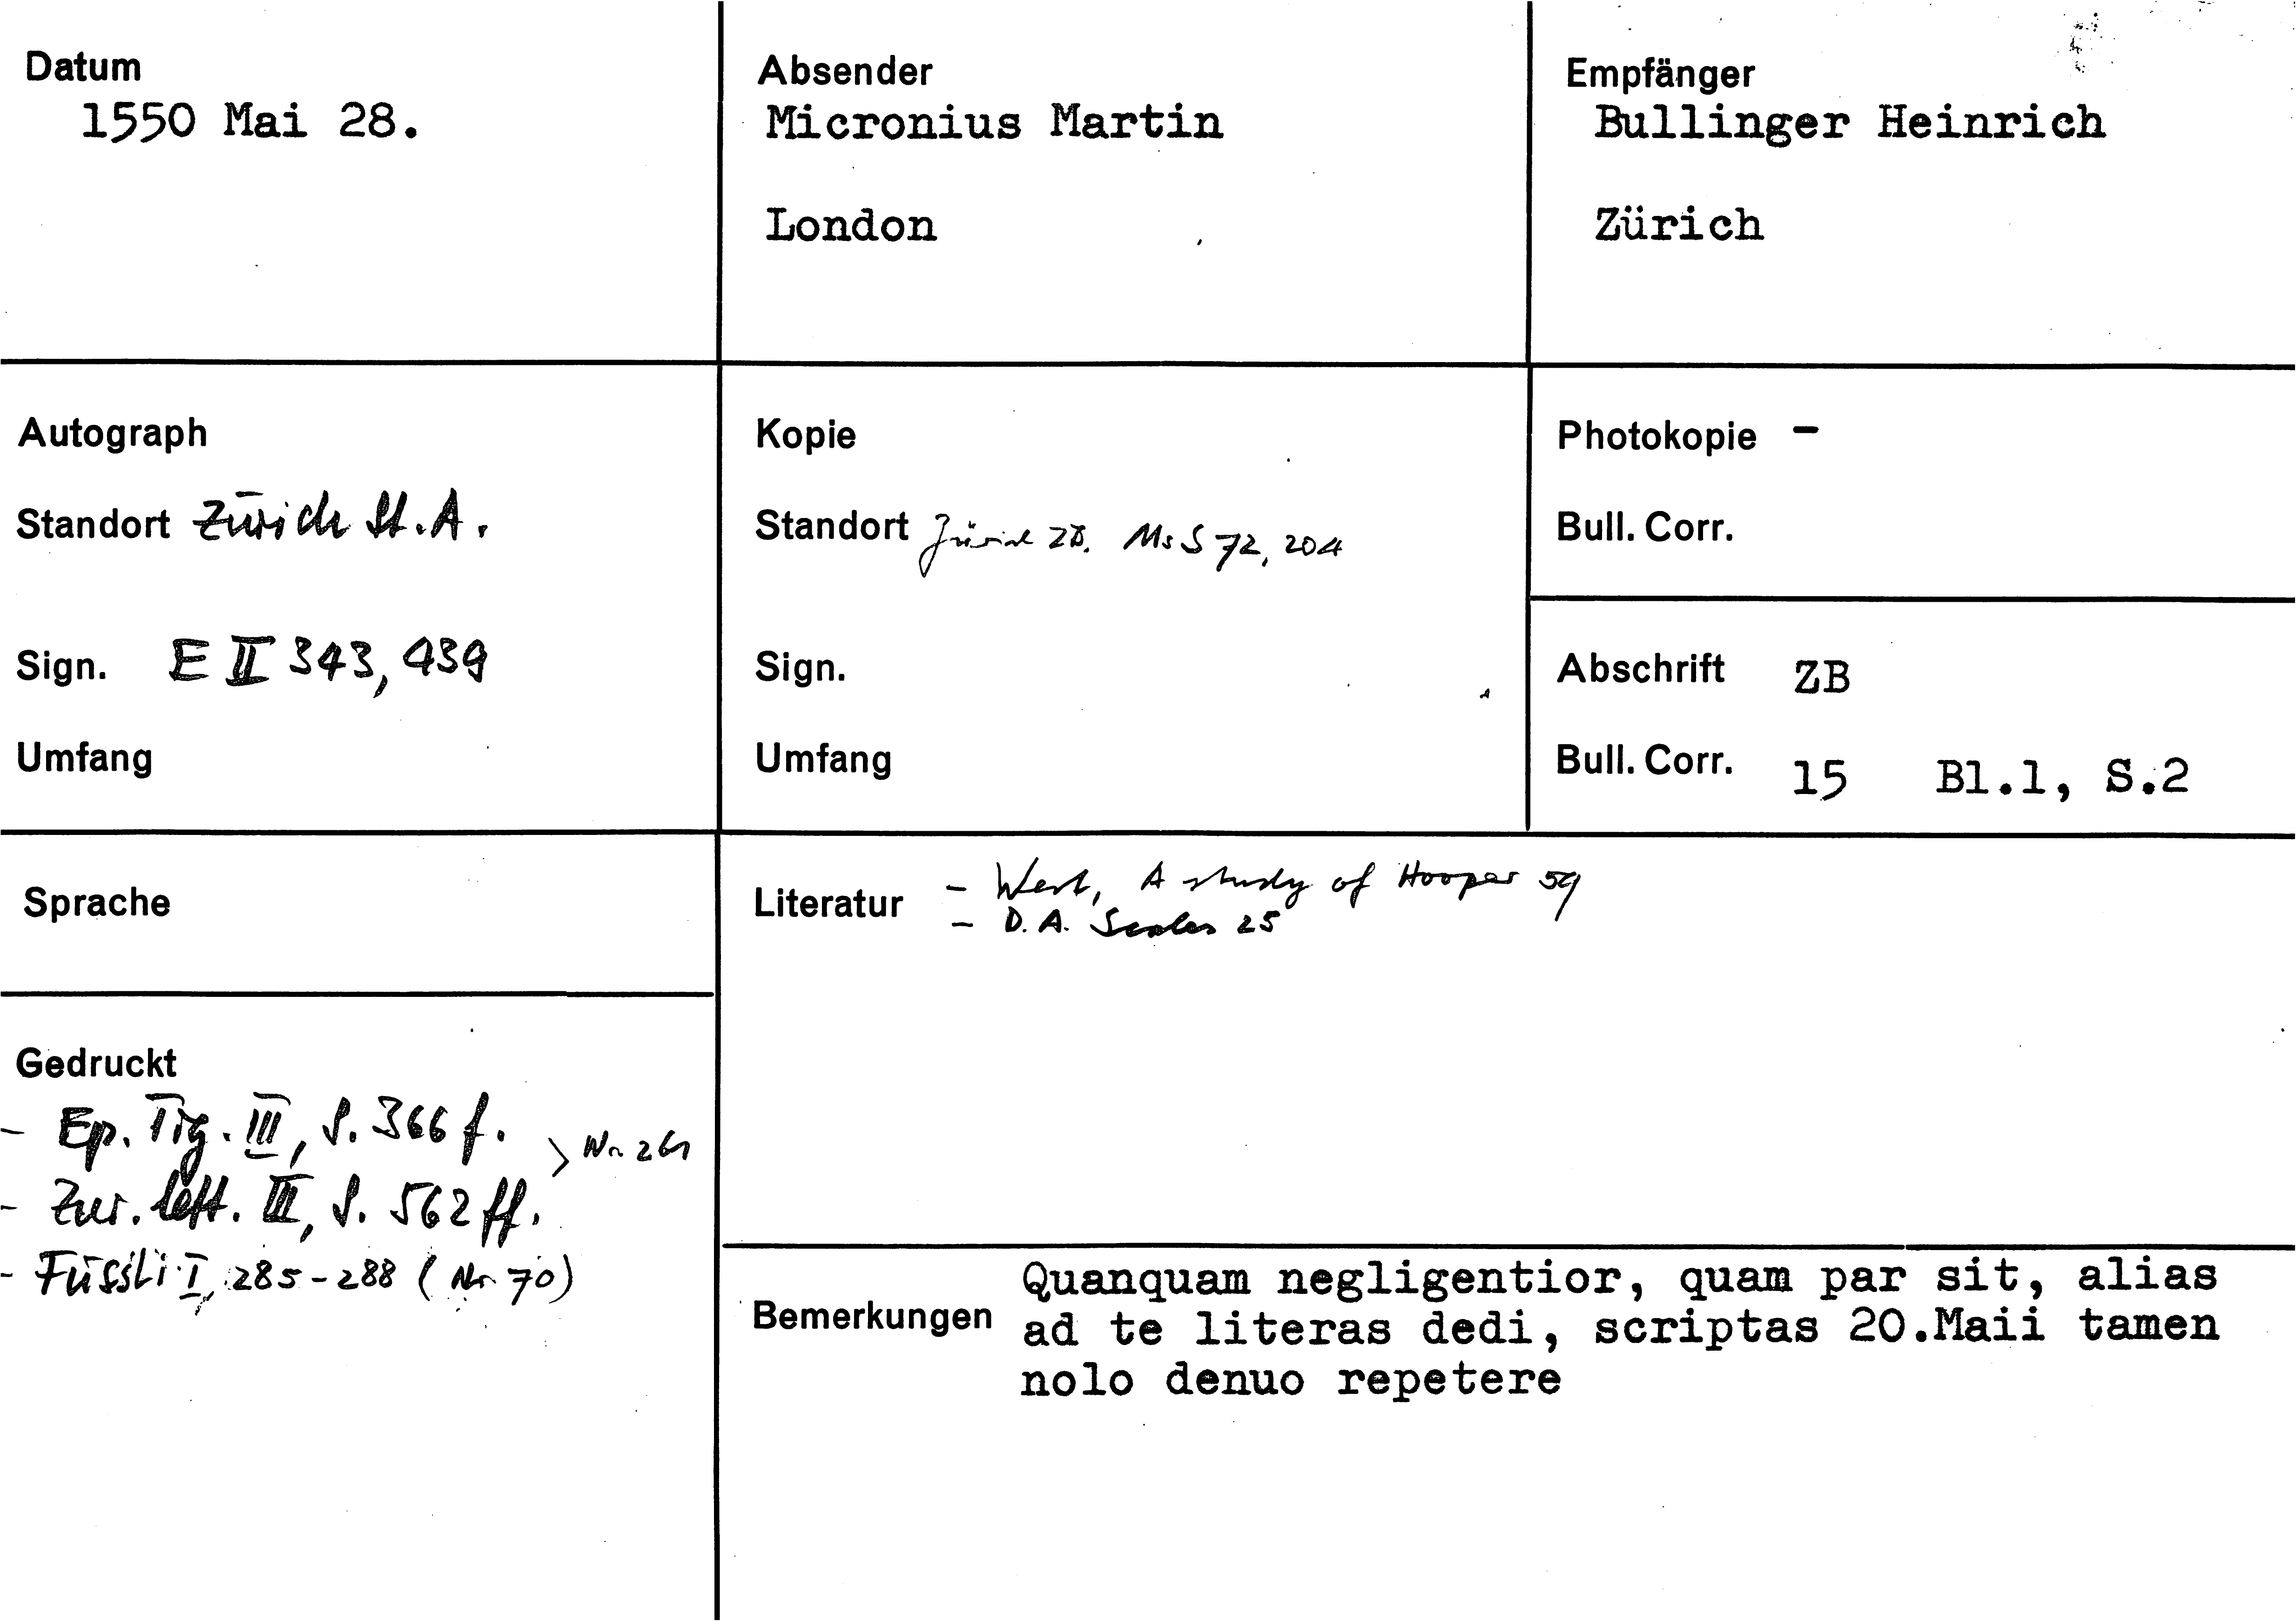 Datum
1550 Mai 28.
Absender
Micronius Martin
London
Empfänger
Bullinger Heinrich
Zürich
Autograph
Standort Zürich St.A.
Sign. E II 343, 439
Umfang
Kopie
Standort Zürich ZB. Ms S 72, 204
Sign.
Umfang
Photokopie -
Bull. Corr.
Abschrift ZB
Bull. Corr. 15 Bl.1, S.2
Sprache
Literatur
- West, A study of Hooper 59
- D.A. Scales 25
Gedruckt
- Ep. Tig. III, S. 366 f.
- Zur. lett. III, S. 562 ff.
> Nr 261
- Füssli I, 285-288 (Nr 70)
Bemerkungen
Quanquam negligentior, quam par sit, alias
ad te literas dedi, scriptas 20.Maii tamen
nolo denuo repetere